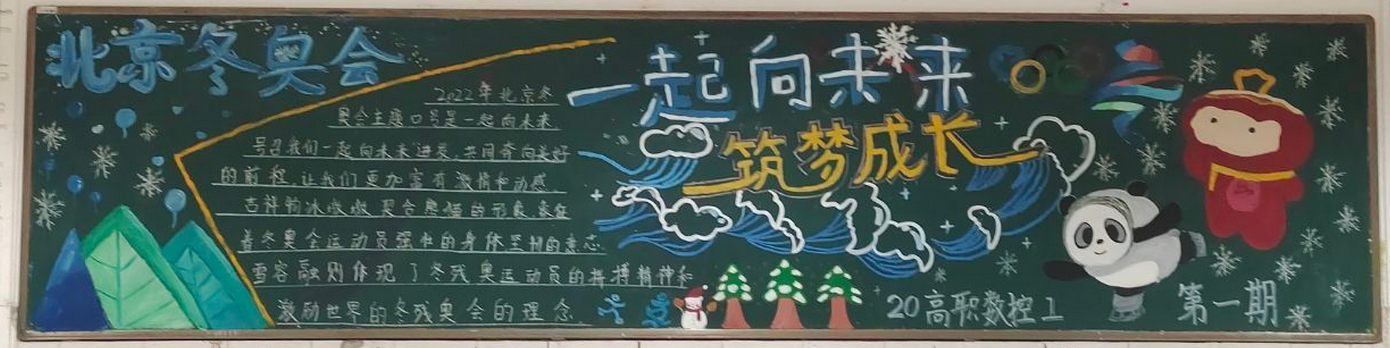 北京冬奥会
2022年北京冬
奥会主题口号是一起向未来
号召我们一起向未来进发,共同奔向美好
的前程,让我们更加富有激情和动感.
吉祥物冰墩墩契合熊猫的形象,象征
着冬奥会运动员强壮的身体坚韧的意志
雪容融则体现了冬残奥运动员的拼搏精神和
激励世界的冬残奥会的理念.
一起向未来
筑梦成长
20高职数控1
第一期